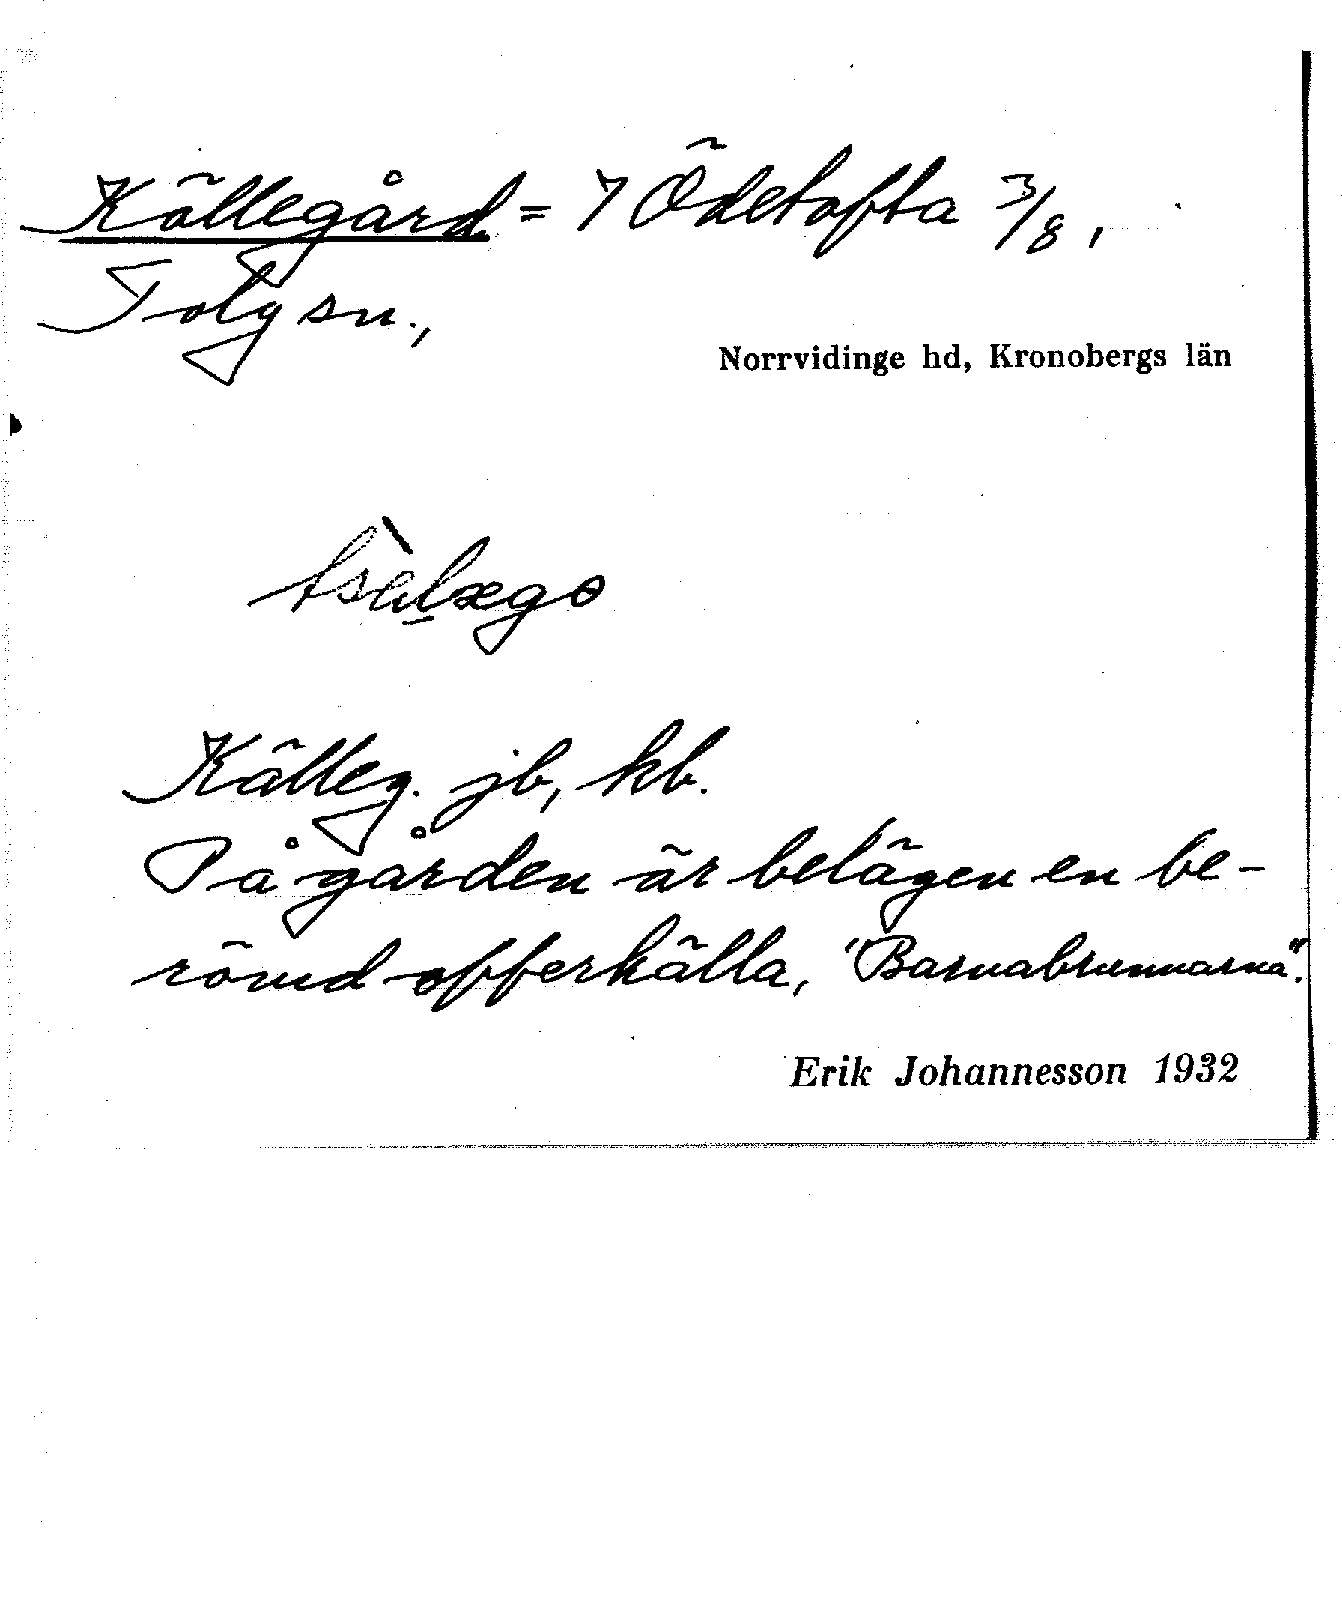 Källegård = 7 Ödetofta 3/8,
Tolg sn.,
Norrvidinge hd, Kronobergs län
Källeg. jb, kb.
På gården är belägen en be-
römd offerkälla, "Barnabrunnarna".
Erik Johannesson 1932